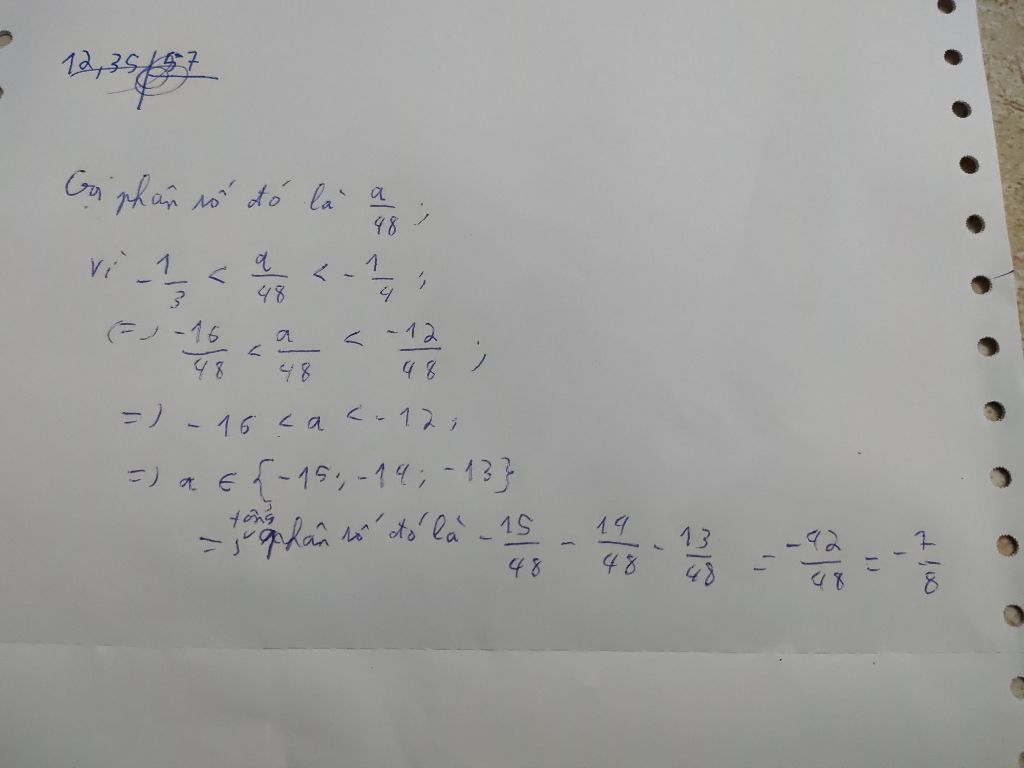 12,35 57
Gọi phân số đó là a/48;
Vì -1/3 < a/48 < -1/4;
(=) -16/48 < a/48 < -12/48;
=) -16 < a < -12;
=) a ∈ {-15; -14; -13}
=) tổng phân số đó là -15/48 - 14/48 - 13/48 = -42/48 = -7/8